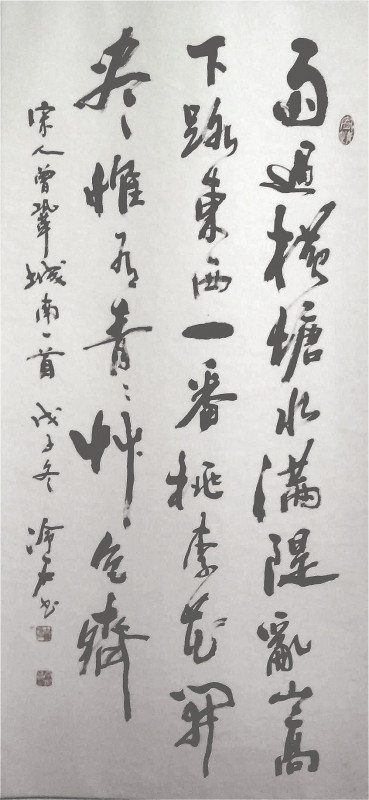 雨過橫塘水滿隄亂山高
下路東西一番桃李花開
尽惟有青〻艸色齊
宋人曾鞏城南一首 戊子冬 书